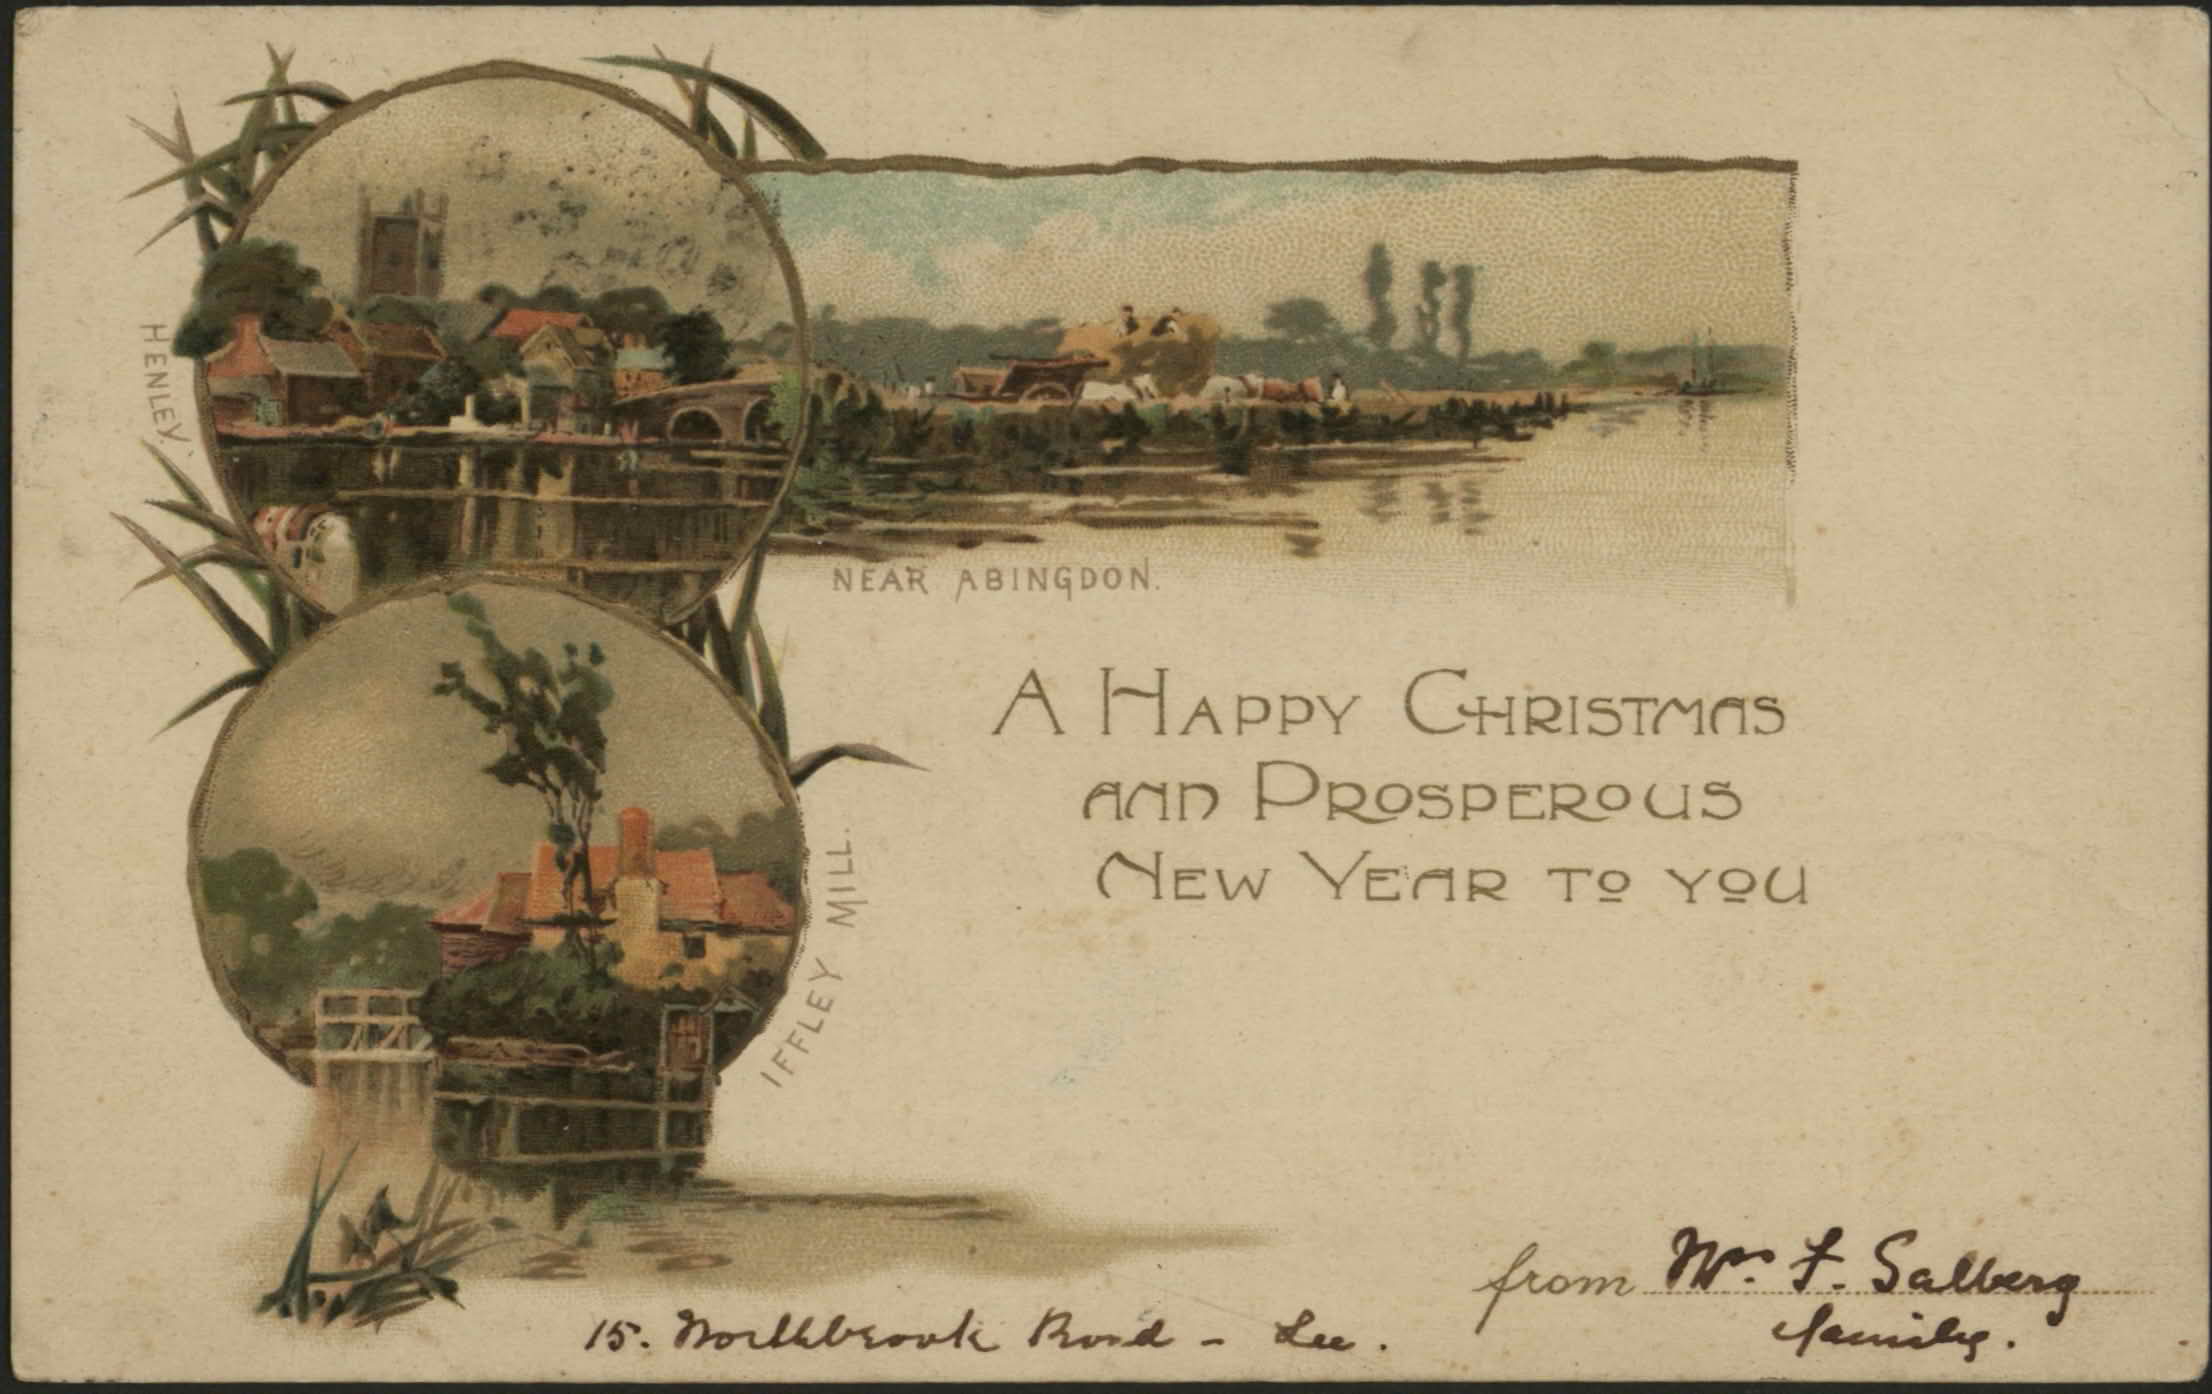 HENLEY.
NEAR ABINGDON.
A HAPPY CHRISTMAS
AND PROSPEROUS
NEW YEAR TO YOU
IFFLEY MILL.
from Mrs. F. Salberg
family.
15. Northbrook Road - Lee.